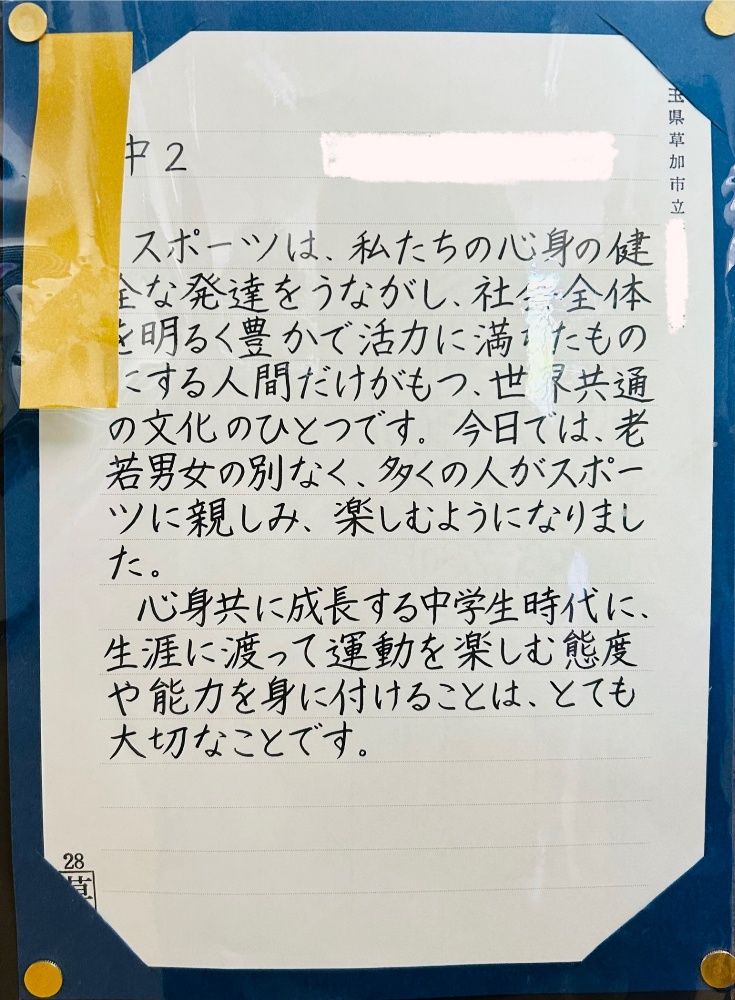 中2
玉県草加市立
スポーツは、私たちの心身の健
全な発達をうながし、社会全体
を明るく豊かで活力に満ちたもの
にする人間だけがもつ、世界共通
の文化のひとつです。今日では、老
若男女の別なく、多くの人がスポー
ツに親しみ、楽しむようになりまし
た。
心身共に成長する中学生時代に、
生涯に渡って運動を楽しむ態度
や能力を身に付けることは、とても
大切なことです。
28
草